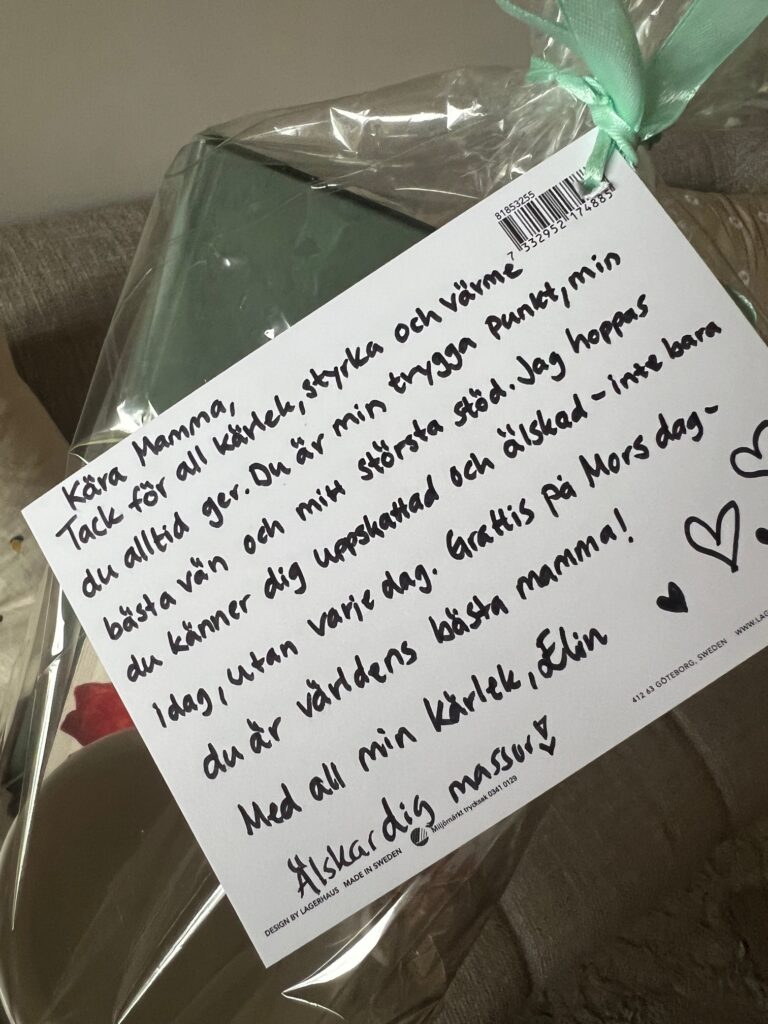 81853255
7 332952 174885
Kära Mamma,
Tack för all kärlek, styrka och värme
du alltid ger. Du är min trygga punkt, min
bästa vän och mitt största stöd. Jag hoppas
du känner dig uppskattad och älskad – inte bara
idag, utan varje dag. Grattis på Mors dag –
du är världens bästa mamma!
Med all min kärlek, Elin
Älskar dig massor
DESIGN BY LAGERHAUS MADE IN SWEDEN
Miljömärkt trycksak 0341 0129
412 63 GÖTEBORG, SWEDEN